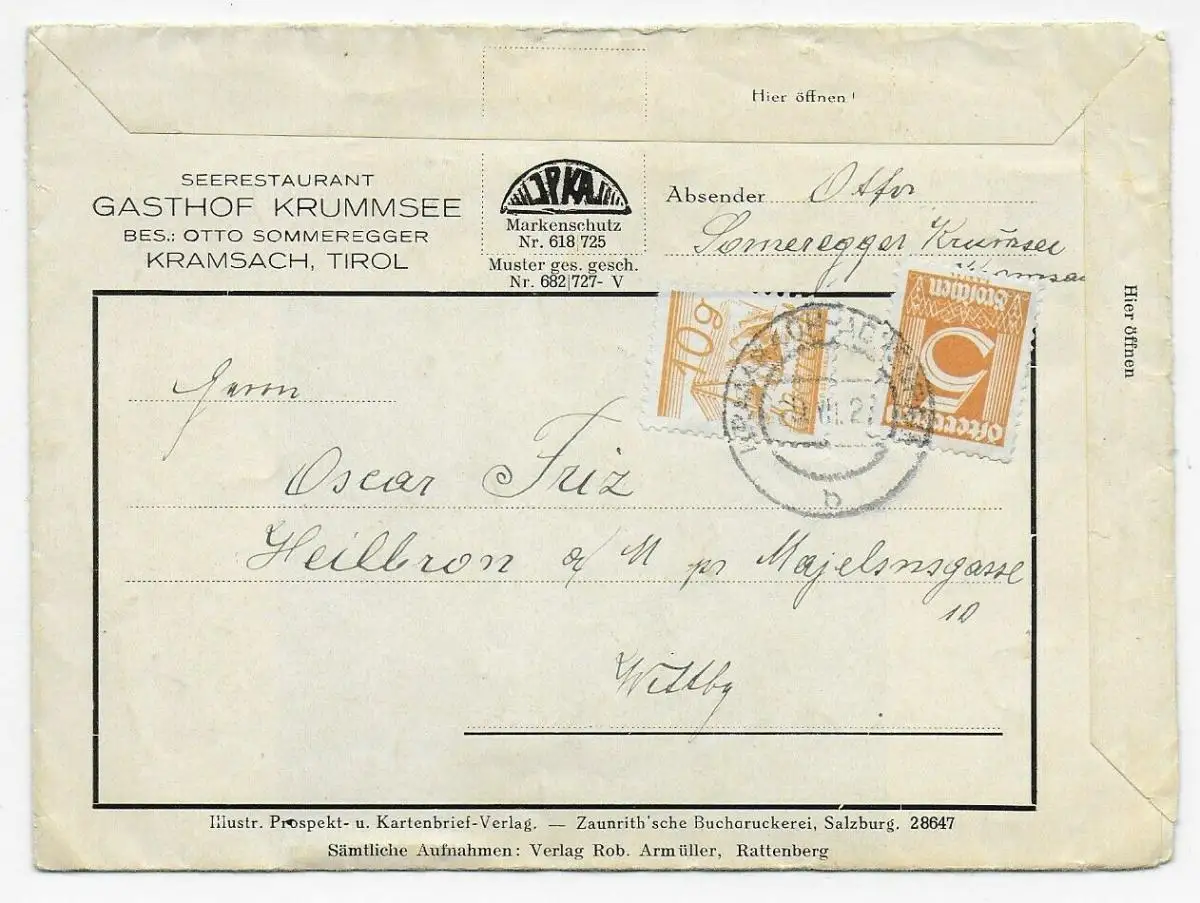 Hier öffnen!
SEERESTAURANT
GASTHOF KRUMMSEE
BES.: OTTO SOMMEREGGER
KRAMSACH, TIROL
IPKA
Markenschutz
Nr. 618|725
Muster ges. gesch.
Nr. 682|727- V
Absender
Someregger Krumsee
Hier öffnen
10g
5
Groschen
b
Herrn
Oscar Friz
Heilbron a/ M pr Majelsnsgasse
10
Wittbg
Illustr. Prospekt- u. Kartenbrief-Verlag. — Zaunrith'sche Buchdruckerei, Salzburg. 28647
Sämtliche Aufnahmen: Verlag Rob. Armüller, Rattenberg